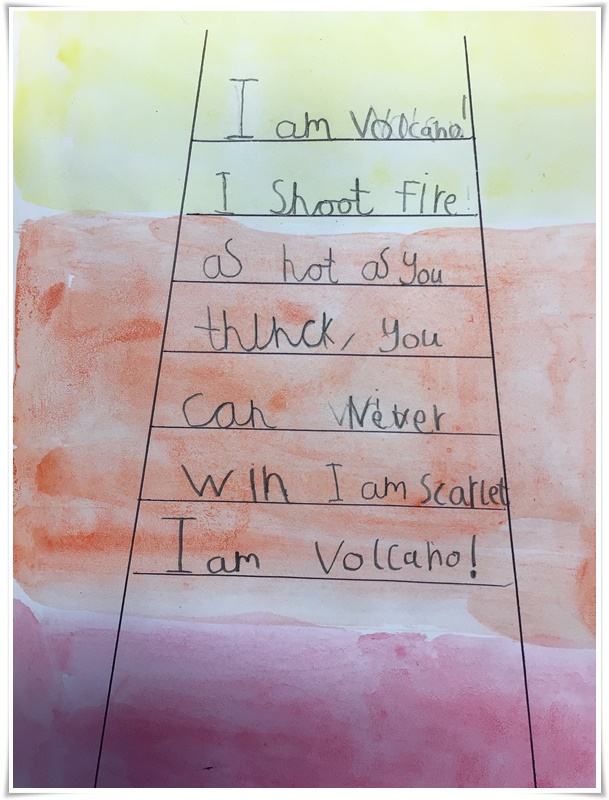 I am Volcano!
I Shoot Fire!
as hot as you
thinck, you
can Never
win I am Scarlet
I am Volcano!